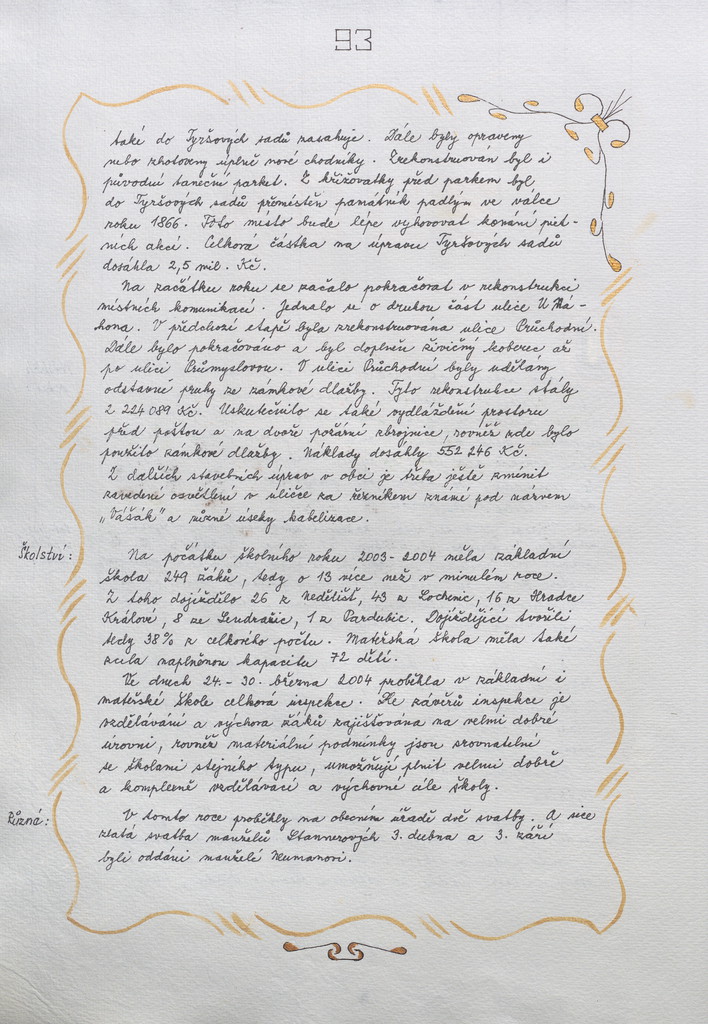 93
také do Tyršových sadů zasahuje. Dále byly opraveny
nebo zhotoveny úplně nové chodníky. Zrekonstruován byl i
původní taneční parket. Z křižovatky před parkem byl
do Tyršových sadů přemístěn památník padlým ve válce
roku 1866. Toto místo bude lépe vyhovovat konání piet-
ních akcí. Celková částka na úpravu Tyršových sadů
dosáhla 2,5 mil. Kč.
Na začátku roku se začalo pokračovat v rekonstrukci
místních komunikací. Jednalo se o druhou část ulice U Má-
chova. V předchozí etapě byla zrekonstruována ulice Průchodní.
Dále bylo pokračováno a byl doplněn živičný koberec až
po ulici Průmyslovou. V ulici Průchodní byly udělány
odstavné pruhy ze zámkové dlažby. Tyto rekonstrukce stály
2 224 089 Kč. Uskutečnilo se také vydláždění prostoru
před poštou a na dvoře požární zbrojnice, rovněž zde bylo
použito zámkové dlažby. Náklady dosáhly 552 246 Kč.
Z dalších stavebních úprav v obci je třeba ještě zmínit
zavedení osvětlení v uličce za řezníkem známé pod názvem
„Vášák" a různé úseky kabelizace.
Školství: Na počátku školního roku 2003-2004 měla základní
škola 249 žáků, tedy o 13 více než v minulém roce.
Z toho dojíždělo 26 z Nedělišť, 43 z Lochenic, 16 z Hradce
Králové, 8 ze Sendražic, 1 z Pardubic. Dojíždějící tvořili
tedy 38% z celkového počtu. Mateřská škola měla také
zcela naplněnou kapacitu 72 dětí.
Ve dnech 24.- 30. března 2004 proběhla v základní i
mateřské škole celková inspekce. Dle závěrů inspekce je
vzdělávání a výchova žáků zajišťována na velmi dobré
úrovni, rovněž materiální podmínky jsou srovnatelné
se školami stejného typu, umožňují plnit velmi dobře
a komplexně vzdělávací a výchovné cíle školy.
Různá: V tomto roce proběhly na obecním úřadě dvě svatby. A sice
zlatá svatba manželů Stannerových 3. dubna a 3. září
byli oddáni manželé Neumanovi.